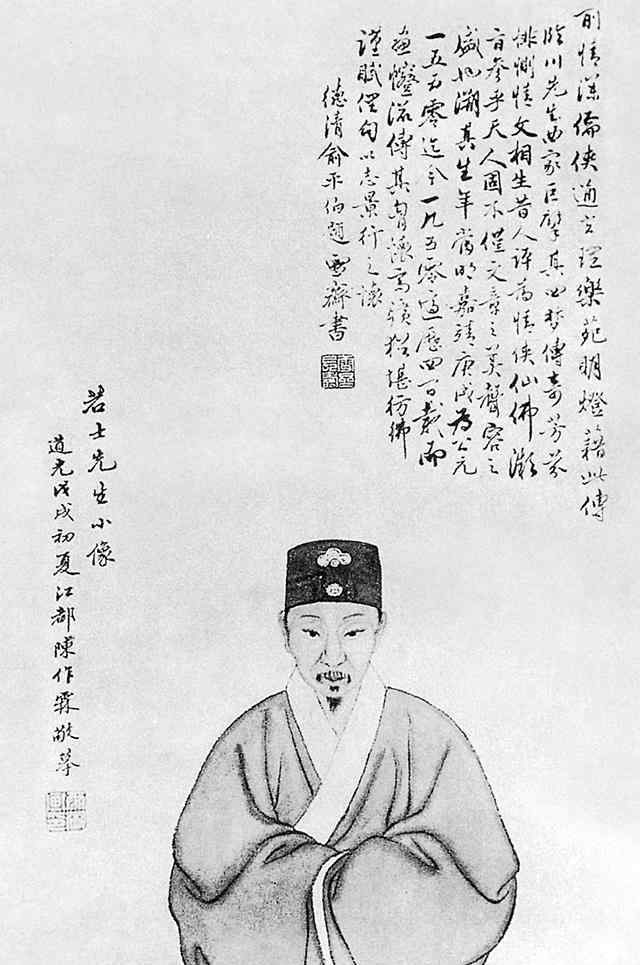 情深儒俠通玄理樂苑明燈藉此傳
臨川先生曲家巨擘其四梦傳奇芳芬
悱惻情文相生昔人評為情俠仙佛
參乎天人固不僅文章之美聲容之
盛也溯其生年當明嘉靖庚戌為公元
一五五零迄今一九五零歷四百載而
画流傳其胸懷高曠猶堪彷彿
謹賦俚句以志景行之懷
德清俞平伯題雪齋書
若士先生小像
道光戊戌初夏江都陳作霖敬摹